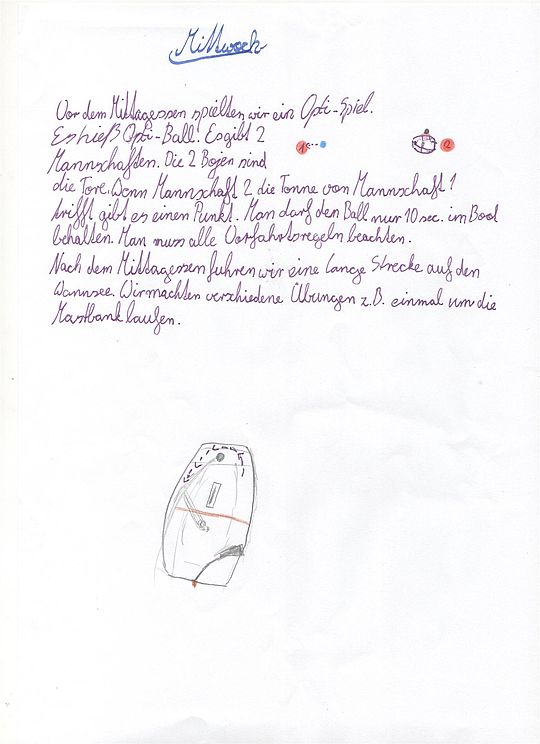 Mittwoch
Vor dem Mittagessen spielten wir ein Opti-Spiel.
Es hieß Opti-Ball. Es gibt 2
1 2
Mannschaften. Die 2 Bojen sind
die Tore. Wenn Mannschaft 2 die Tonne von Mannschaft 1
trifft gibt es einen Punkt. Man darf den Ball nur 10 sec. im Boot
behalten. Man muss alle Vorfahrtsregeln beachten.
Nach dem Mittagessen fuhren wir eine lange Strecke auf den
Wannsee. Wir machten verschiedene Übungen z.B. einmal um die
Mastbank laufen.